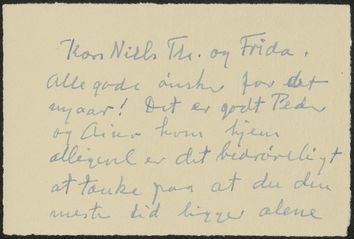 Kære Niels Th. og Frida.
Alle gode ønsker for det
nyaar! Det er godt Peder
og Aino kom hjem
alligevel er det bedrøveligt
at tænke paa at du den
meste tid ligger alene